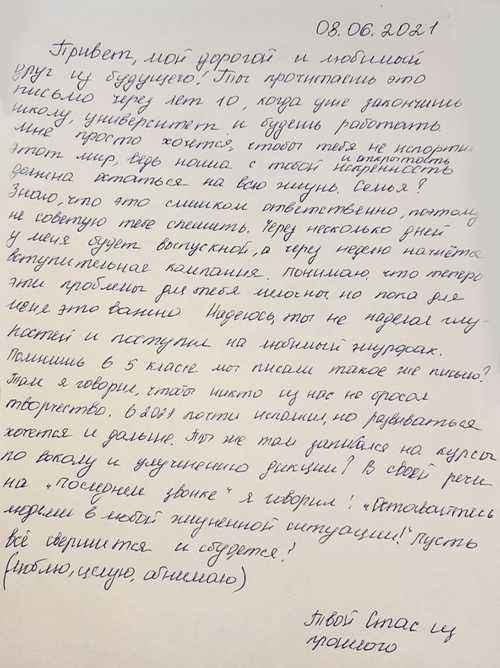 08.06.2021
Привет, мой дорогой и любимый
друг из будущего! Ты прочитаешь это
письмо через лет 10, когда уже закончишь
школу, университет и будешь работать.
Мне просто хочется, чтобы тебя не испортил
этот мир, ведь наша с тобой искренность
и открытость
должна остаться на всю жизнь. Семья?
Знаю, что это слишком ответственно, поэтому
не советую тебе спешить. Через несколько дней
у меня будет выпускной, а через неделю начнётся
вступительная кампания. Понимаю, что теперь
эти проблемы для тебя мелочны, но пока для
меня это важно. Надеюсь, ты не наделал глу-
постей и поступил на любимый журфак.
Помнишь в 5 классе мы писали такое же письмо?
Там я говорил, чтобы никто из нас не бросал
творчество. В 2021 почти исполнил, но развиваться
хочется и дальше. Ты же там записался на курсы
по вокалу и улучшению дикции? В своей речи
на "Последнем звонке" я говорил: "Оставайтесь
людьми в любой жизненной ситуации!" Пусть
всё свершится и сбудется!
(люблю, целую, обнимаю)
Твой Стас из
прошлого